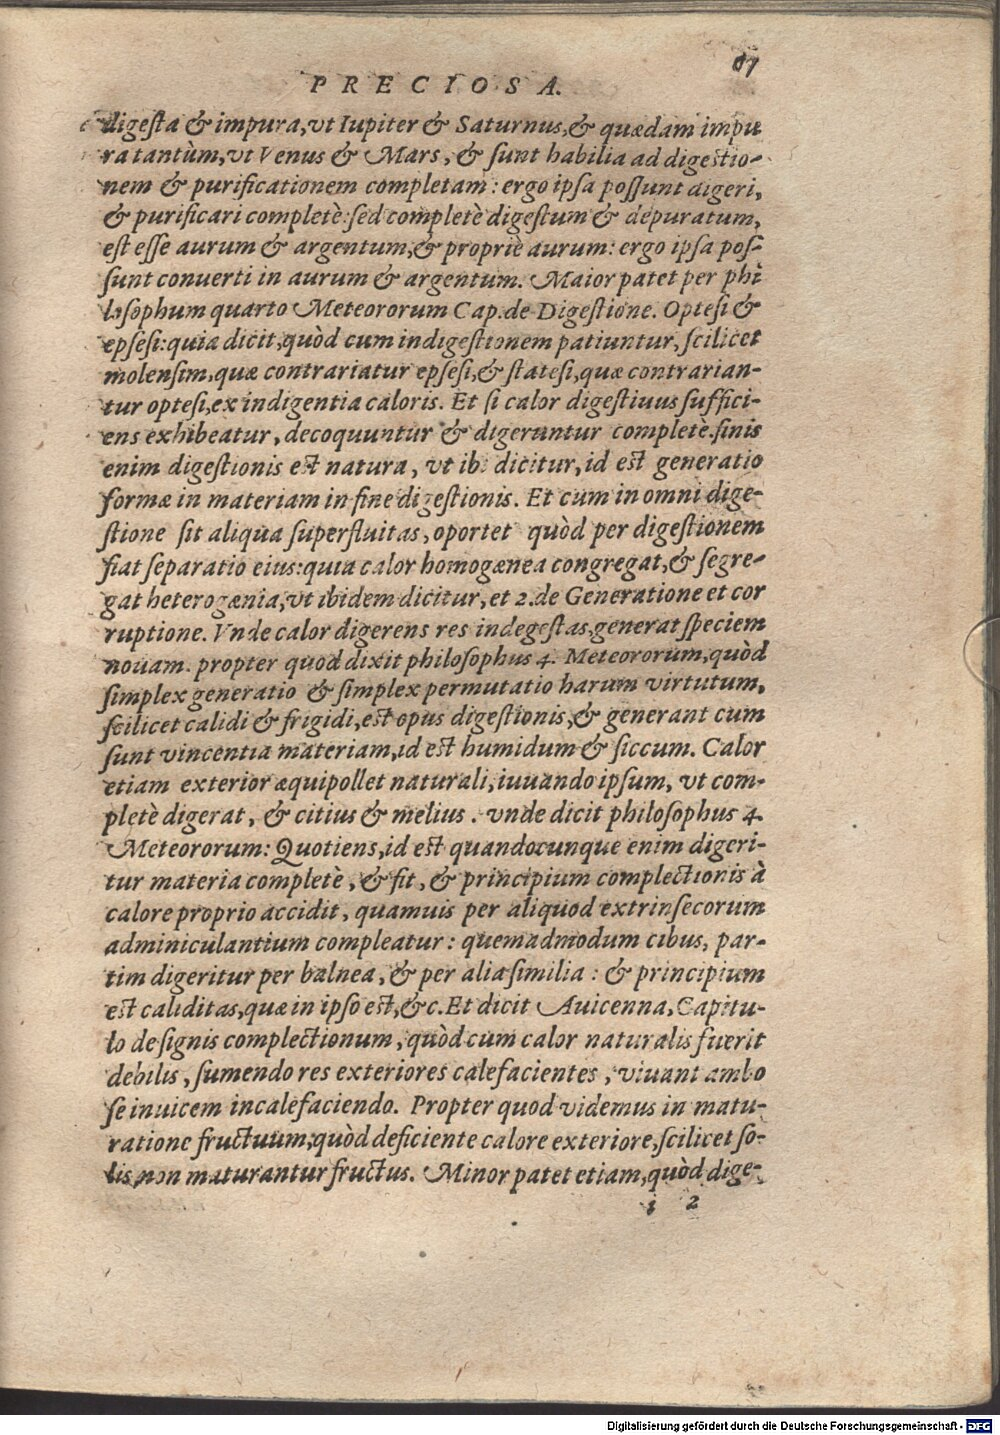 67
PRECIOSA.
digesta & impura,vt Iupiter & Saturnus,& quædam impu
ra tantùm,vt Venus & Mars, & sunt habilia ad digestio-
nem & purificationem completam: ergo ipsa possunt digeri,
& purificari completè:sed completè digestum & depuratum,
est esse aurum & argentum,& propriè aurum: ergo ipsa pos-
sunt conuerti in aurum & argentum. Maior patet per phi
losophum quarto Meteororum Cap.de Digestione. Optesi &
epsesi:quia dicit,quòd cum indigestionem patiuntur, scilicet
molensim,quæ contrariatur epsesi,& statesi,quæ contrarian-
tur optesi,ex indigentia caloris. Et si calor digestiuus suffici-
ens exhibeatur, decoquuntur & digeruntur completè.finis
enim digestionis est natura, vt ibi dicitur,id est generatio
formæ in materiam in fine digestionis. Et cum in omni dige-
stione sit aliqua superfluitas, oportet quòd per digestionem
fiat separatio eius:quia calor homogænea congregat,& segre-
gat heterogænia,vt ibidem dicitur, et 2.de Generatione et cor
ruptione. Vnde calor digerens res indegestas,generat speciem
nouam. propter quod dixit philosophus 4. Meteororum,quòd
simplex generatio & simplex permutatio harum virtutum,
scilicet calidi & frigidi,est opus digestionis,& generant cum
sunt vincentia materiam,id est humidum & siccum. Calor
etiam exterior æquipollet naturali,iuuando ipsum, vt com-
pletè digerat, & citius & melius. vnde dicit philosophus 4.
Meteororum: Quotiens,id est quandocunque enim digeri-
tur materia completè, & fit, & principium complectionis à
calore proprio accidit, quamuis per aliquod extrinsecorum
adminiculantium compleatur: quemadmodum cibus, par-
tim digeritur per balnea, & per alia similia: & principium
est caliditas,quæ in ipso est,&c.Et dicit Auicenna, Capitu-
lo de signis complectionum, quòd cum calor naturalis fuerit
debilis, sumendo res exteriores calefacientes, viuant ambo
se inuicem incalefaciendo. Propter quod videmus in matu-
ratione fructuum,quòd deficiente calore exteriore,scilicet so-
lis,non maturantur fructus. Minor patet etiam,quòd dige-
i 2
Digitalisierung gefördert durch die Deutsche Forschungsgemeinschaft - DFG